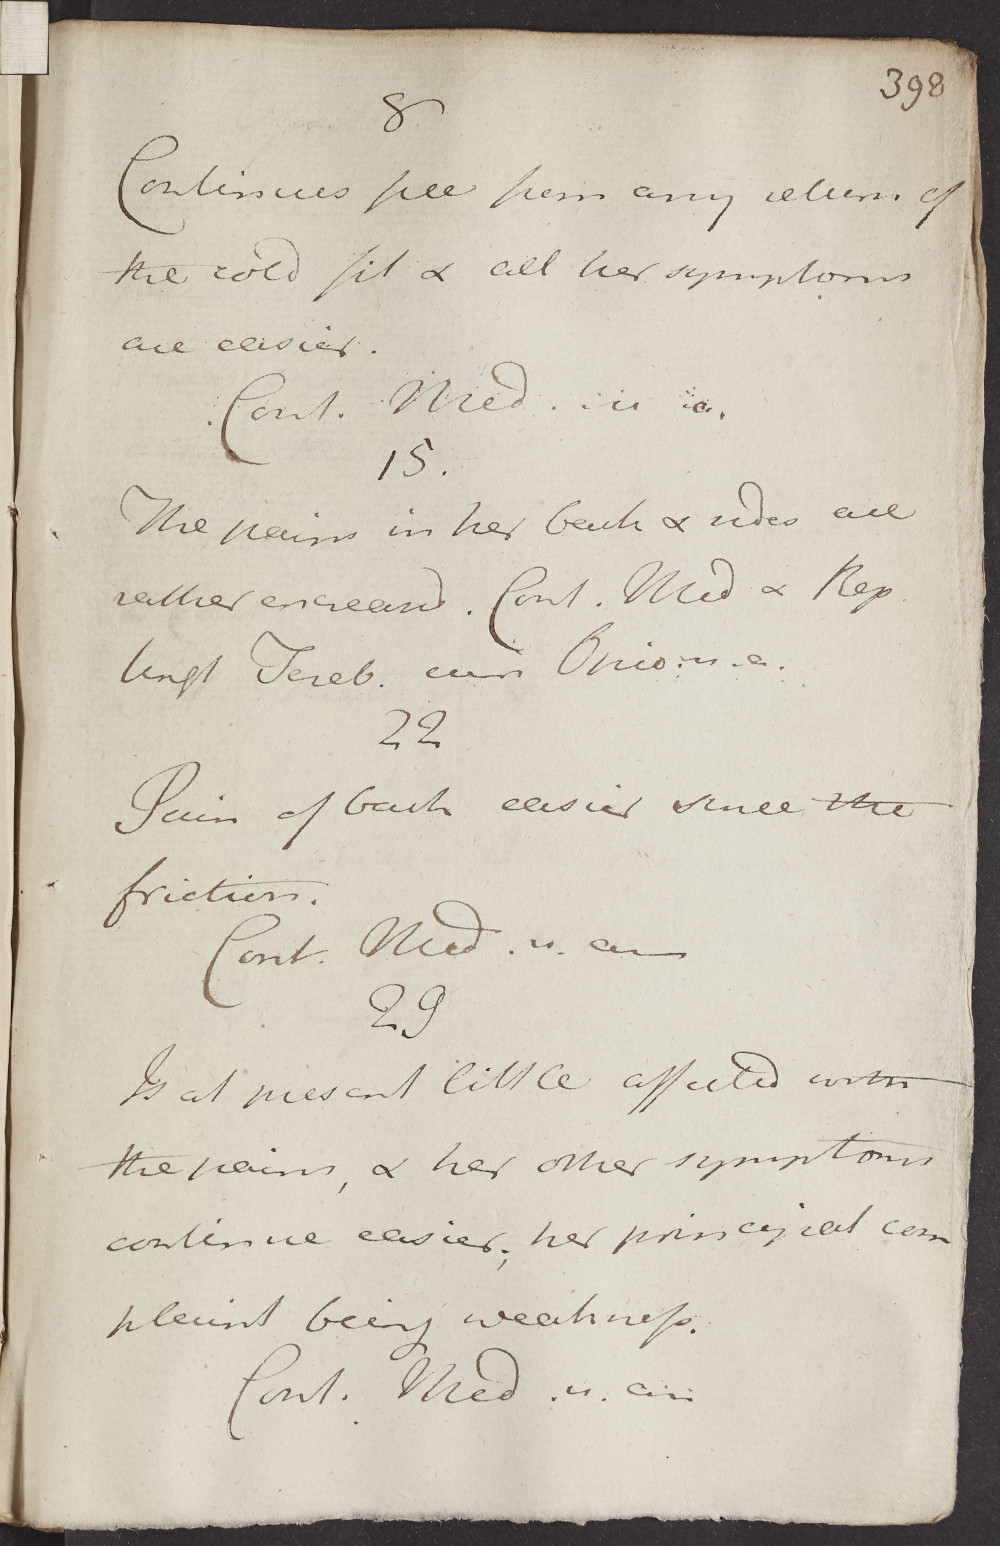 398
8
Continues free from any return of
the cold fit & all her symptoms
are easier.
Cont. Med. u. a.
15.
The pains in her back & sides are
rather encreased. Cont. Med & Rep
Ungt Tereb. cum Opio. u. a.
22
Pain of back easier since the
friction.
Cont. Med. u. an
29
Is at present little affected with
the pains, & her other symptoms
continue easier; her principal com
plaint being weakness.
Cont. Med. u. an